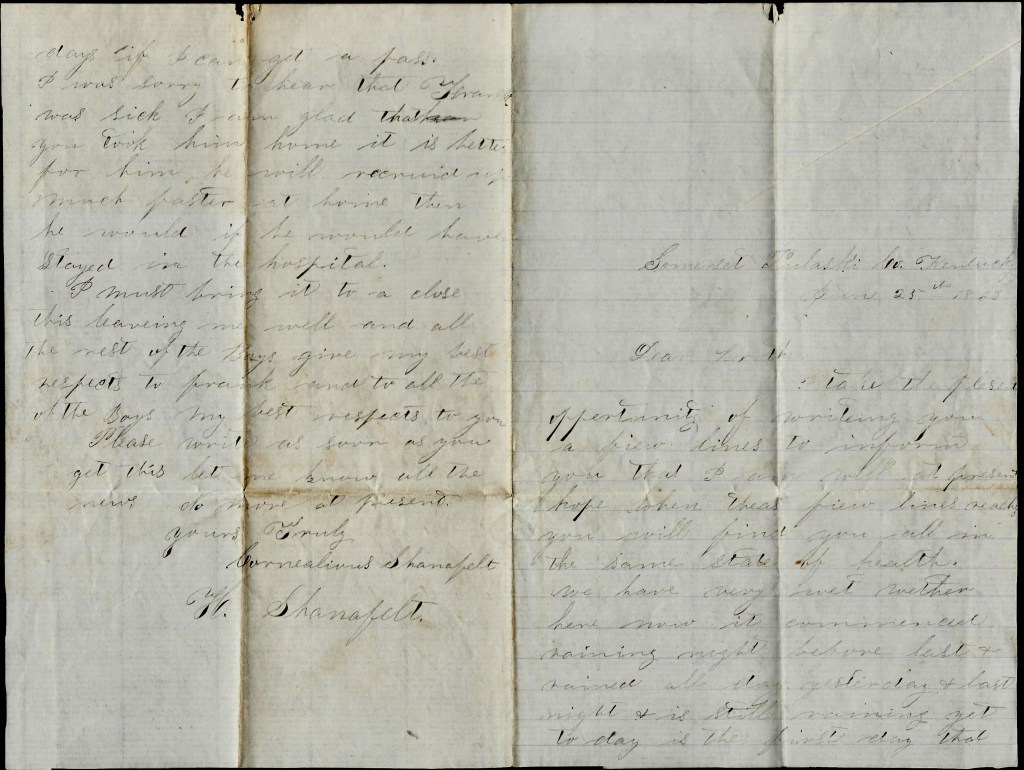 days if I can get a pass.
I was sorry to hear that Frank
was sick I am glad that
you took him home it is better
for him he will recruid up
much faster at home then
he would if he would have
stayed in the hospital.
I must bring it to a close
this leaveing me well and all
the rest of the Boys give my best
respects to frank and to all the
of the Boys my best respects to you
Please write as soon as you
get this let me know all the
news no more at present.
Yours Truly
Cornealious Shanafelt
H. Shanafelt.
Somerset Pulaski Co. Kentucky
June 25th
Dear
take the present
oppertunity of writeing you
a fiew lines to inform
you that I am well at present
hope when theas fiew lines reach
you will find you all in
the same state of health.
we have very wet wether
here now it commenced
raining night before last &
rained all day yesterday & last
night & is still raining yet
to day is the first day that